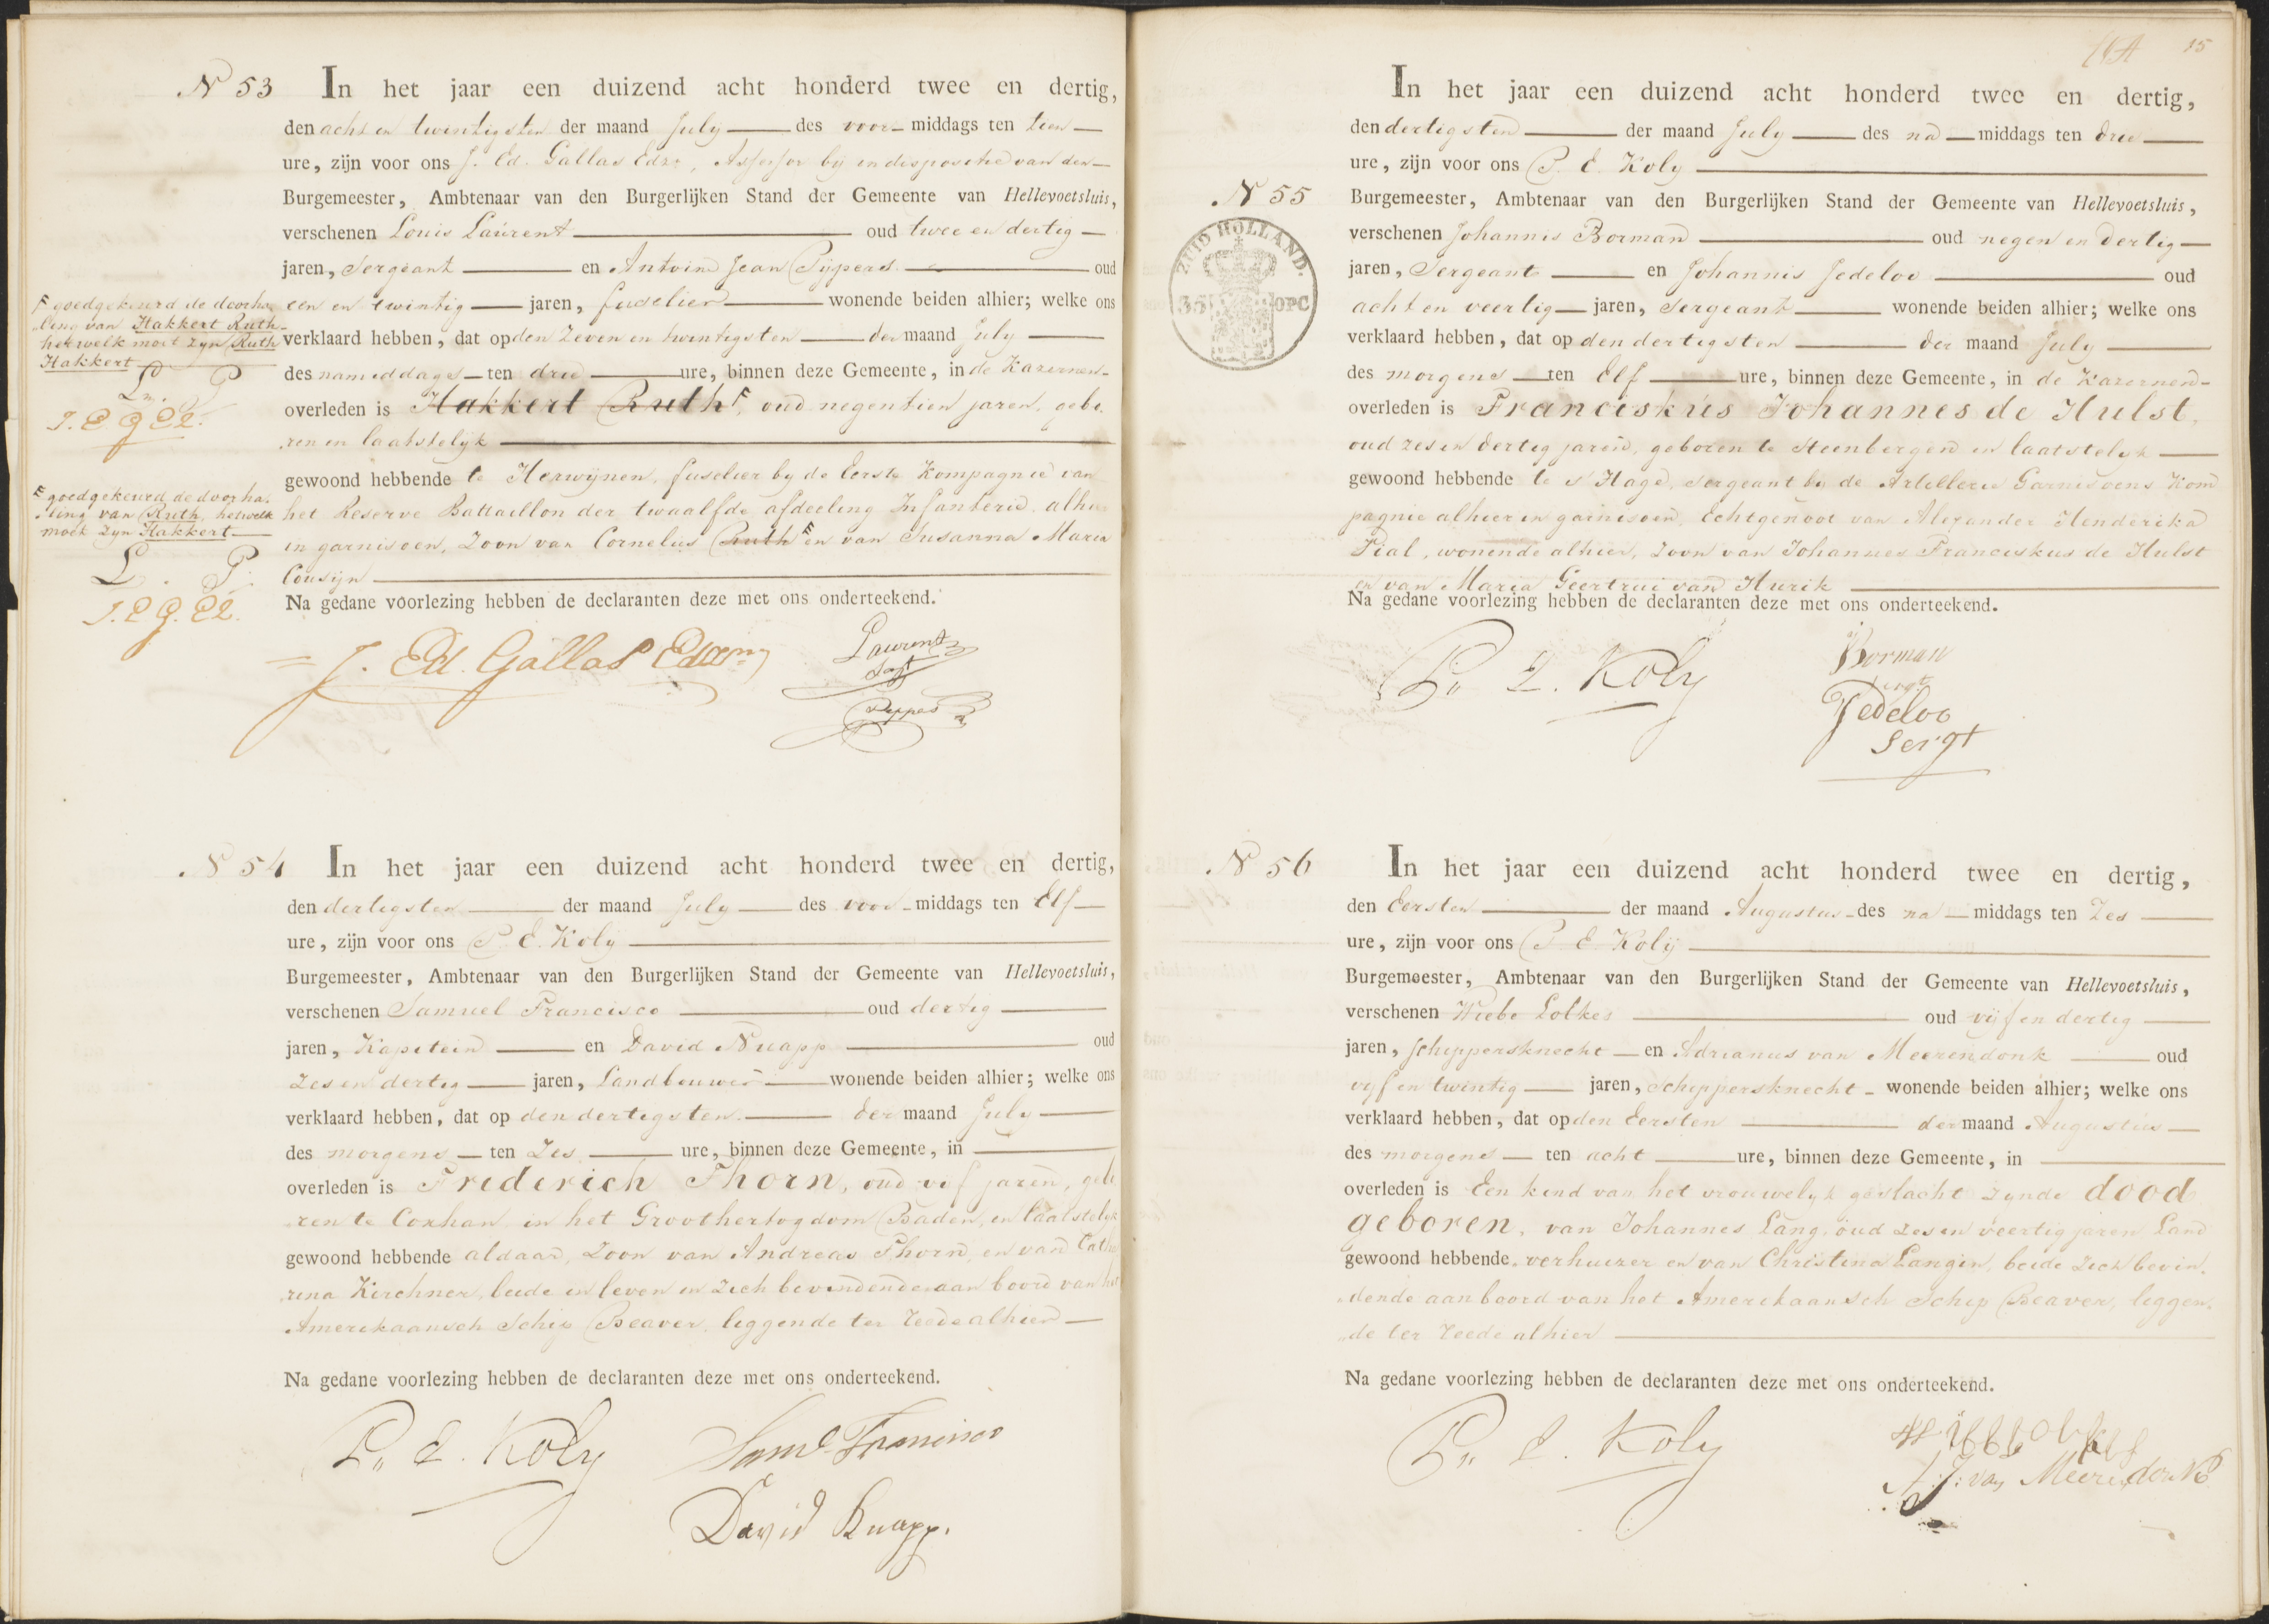 N 53
In het jaar een duizend acht honderd twee en dertig,
den acht en twintigsten der maand July des voor-middags ten tien
ure, zijn voor ons J. Ed. Gallas Edzn, Assessor by indispositie van den
Burgemeester, Ambtenaar van den Burgerlijken Stand der Gemeente van Hellevoetsluis,
verschenen Louis Laurent oud twee en dertig
jaren, Sergeant en Antoine Jean Pijpers oud
een en twintig jaren, fuselier wonende beiden alhier; welke ons
verklaard hebben, dat op den zeven en twintigsten der maand July
des namiddags ten drie ure, binnen deze Gemeente, in de Kazernen
overleden is Hakkert Ruth, oud negentien jaren, gebo
ren en laatstelyk
gewoond hebbende te Herwijnen, fuselier by de Eerste Kompagnie van
het Reserve Battaillon der twaalfde afdeeling Infanterie, alhier
in garnisoen, Zoon van Cornelus Ruth en van Susanna Maria
Cousijn
Na gedane voorlezing hebben de declaranten deze met ons onderteekend.
J. Ed. Gallas Edzn
Laurent
Sergt
Pyppers
goedgekeurd de doorha
ling van Hakkert Ruth
hetwelk moet zyn Ruth
Hakkert
L. P.
J. E. G. Ez.
goedgekeurd de doorha
ling van Ruth, hetwelk
moet zyn Hakkert
L. P.
J. E. G. Ez.
N 54
In het jaar een duizend acht honderd twee en dertig,
den dertigsten der maand July des voor-middags ten Elf
ure, zijn voor ons P. E. Kolij
Burgemeester, Ambtenaar van den Burgerlijken Stand der Gemeente van Hellevoetsluis,
verschenen Samuel Francisco oud dertig
jaren, Kapitein en David Nuapp oud
zes en dertig jaren, Landbouwer wonende beiden alhier; welke ons
verklaard hebben, dat op den dertigsten der maand July
des morgens ten Zes ure, binnen deze Gemeente, in
overleden is Frederich Thorn, oud vijf jaren, gebo
ren te Coxhan in het Groothertogdom Baden, en laatstelyk
gewoond hebbende aldaar, Zoon van Andreas Thorn, en van Catha
rina Kirchner, beide in leven en zich bevindende aan boord van het
Amerikaansch Schip Beaver, leggende ter Reede alhier
Na gedane voorlezing hebben de declaranten deze met ons onderteekend.
P. E. Koly
Saml Francisco
David Knapp.
15
In het jaar een duizend acht honderd twee en dertig,
den dertigsten der maand July des na middags ten drie
ure, zijn voor ons P. E. Koly
N 55
ZUID HOLLAND.
35 OPC
Burgemeester, Ambtenaar van den Burgerlijken Stand der Gemeente van Hellevoetsluis,
verschenen Johannis Borman oud negen en dertig
jaren, Sergeant en Johannis Jedeloo oud
acht en veertig jaren, Sergeant wonende beiden alhier; welke ons
verklaard hebben, dat op den dertigsten der maand July
des morgens ten Elf ure, binnen deze Gemeente, in de Kazernen
overleden is Franciskus Johannes de Hulst,
oud zes en dertig jaren, geboren te Steenbergen en laatstelyk
gewoond hebbende te s'Hage, sergeant by de Artillerie Garnisoens Kom
pagnie alhier in garnisoen, Echtgenoot van Alexander Henderika
Pial, wonende alhier, Zoon van Johannes Franciskus de Hulst
en van Maria Geertrui van Hurik
Na gedane voorlezing hebben de declaranten deze met ons onderteekend.
P. E. Koly
Borman
sergt
Jedeloo
Sergt
N 56
In het jaar een duizend acht honderd twee en dertig,
den Eersten der maand Augustus des na middags ten Zes
ure, zijn voor ons P. E. Kolij
Burgemeester, Ambtenaar van den Burgerlijken Stand der Gemeente van Hellevoetsluis,
verschenen Wiebe Lolkes oud vijf en dertig
jaren, Schippersknecht en Adrianus van Meerendonk oud
vyf en twintig jaren, Schippersknecht wonende beiden alhier; welke ons
verklaard hebben, dat op den Eersten der maand Augustus
des morgens ten acht ure, binnen deze Gemeente, in
overleden is Een kind van het vrouwelyk geslacht zynde dood
geboren, van Johannes Lang, oud zes en veertig jaren, Land
gewoond hebbende verhuurer en van Christina Langin, beide zich bevin
dende aan boord van het Amerikaansch Schip Beaver, leggen
de ter Reede alhier
Na gedane voorlezing hebben de declaranten deze met ons onderteekend.
P. E. Koly
van Meerendonk